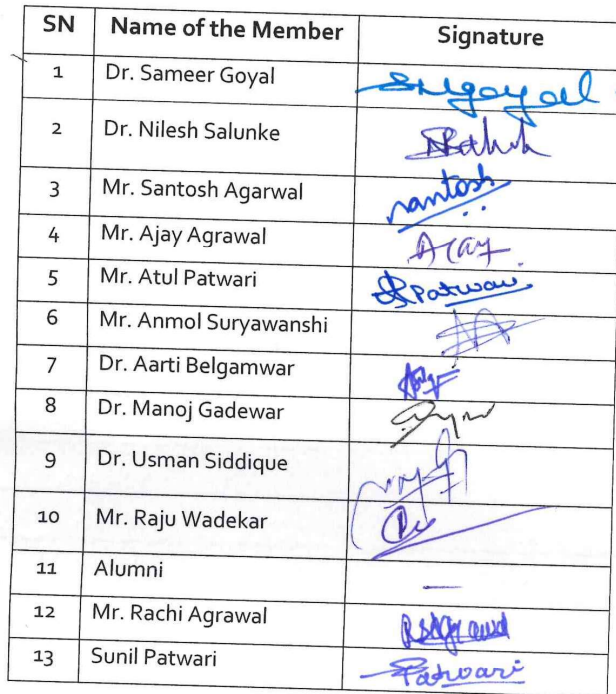 SN Name of the Member Signature
1 Dr. Sameer Goyal SNgoyal
2 Dr. Nilesh Salunke
3 Mr. Santosh Agarwal santosh
4 Mr. Ajay Agrawal Ajay
5 Mr. Atul Patwari Patwari
6 Mr. Anmol Suryawanshi
7 Dr. Aarti Belgamwar
8 Dr. Manoj Gadewar
9 Dr. Usman Siddique
10 Mr. Raju Wadekar
11 Alumni —
12 Mr. Rachi Agrawal RSAgrawal
13 Sunil Patwari Patwari